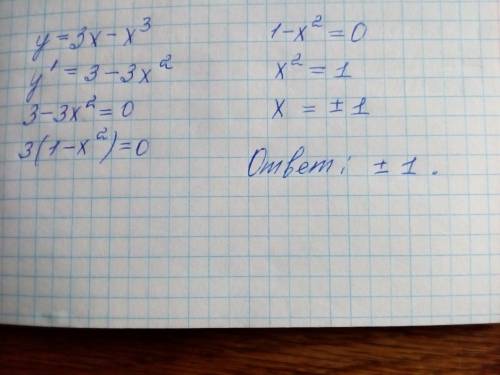 y = 3x - x³
y' = 3 - 3x²
3 - 3x² = 0
3(1 - x²) = 0
1 - x² = 0
x² = 1
x = ± 1
Ответ: ± 1.